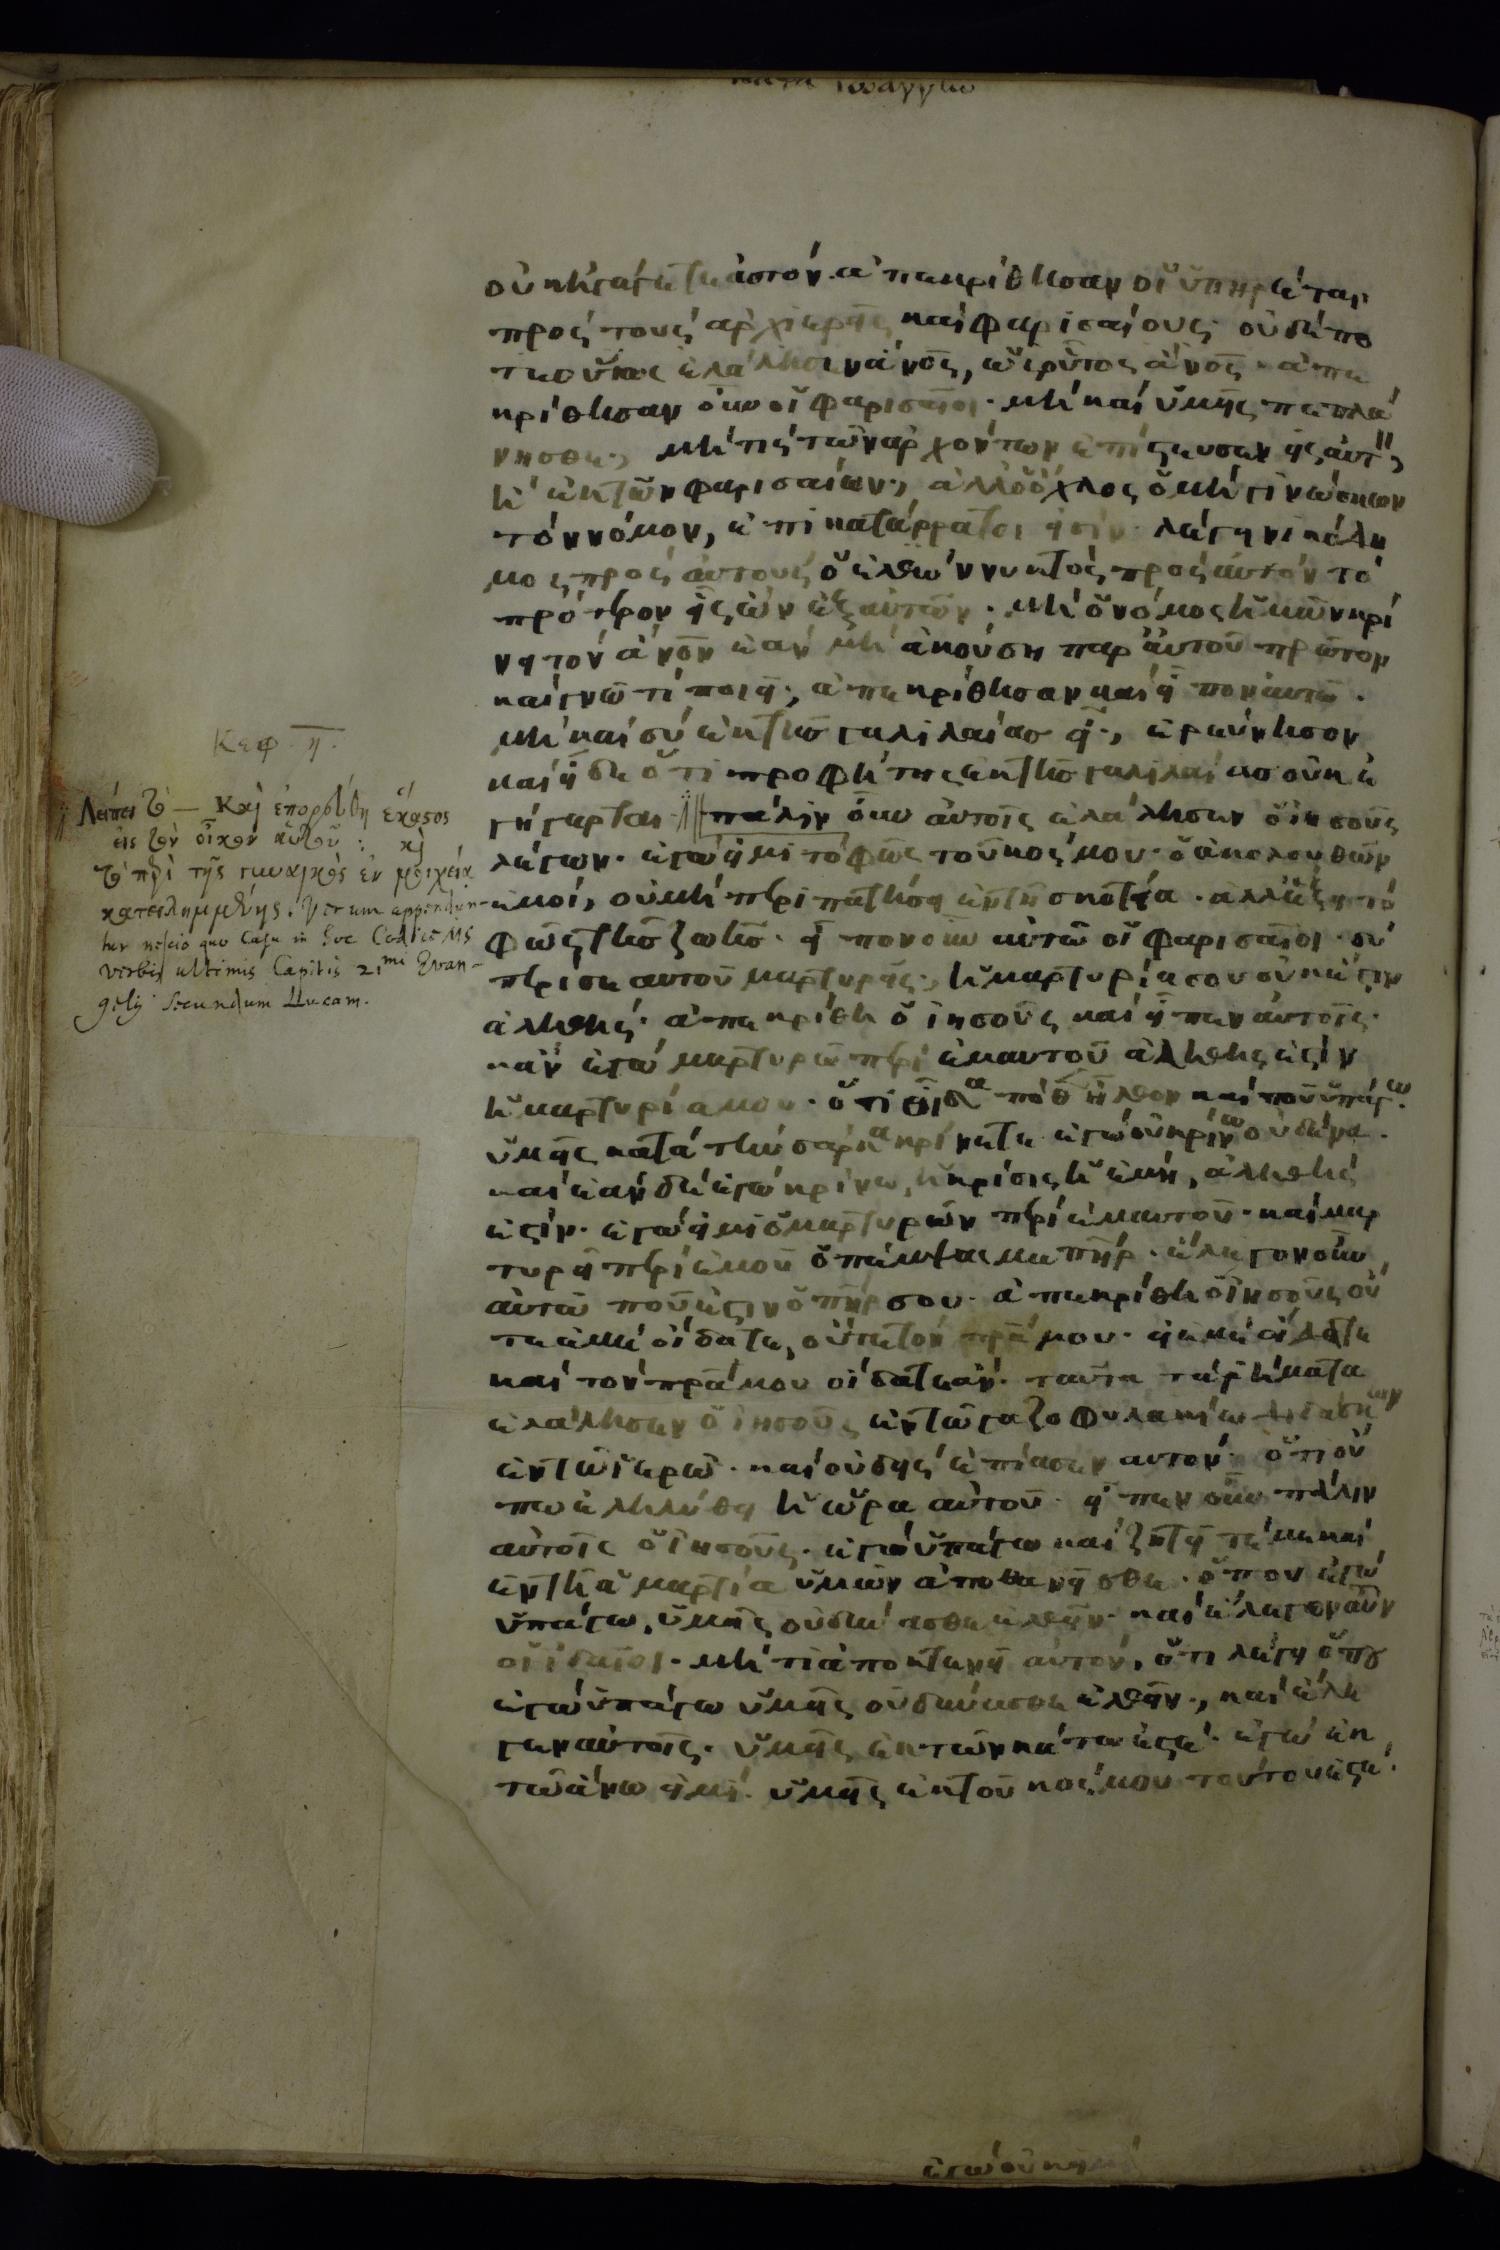 κατα ιωαννην
οὐκ ἠγάγετε αὐτόν· ἀπεκρίθησαν οἱ ὑπηρέται
πρὸς τοὺς ἀρχιερεῖς καὶ φαρισαίους· οὐδέπο
τε οὕτως ἐλάλησεν ἄνος, ὡς οὗτος ἄνος· ἀπε
κρίθησαν οὖν οἱ φαρισαῖοι· μὴ καὶ ὑμεῖς πεπλά
νησθε; μή τις τῶν ἀρχόντων ἐπίστευσεν εἰς αὐτ
ἢ ἐκ τῶν φαρισαίων; ἀλλ' ὁ ὄχλος ὁ μὴ γινώσκων
τὸν νόμον, ἐπικατάρρατοι εἰσίν· λέγει νικόδη
μος πρὸς αὐτοὺς ὁ ἐλθὼν νυκτὸς πρὸς αὐτὸν τὸ
πρότερον εἷς ὢν ἐξ αὐτῶν· μὴ ὁ νόμος ἡμῶν κρί
νει τὸν ἄνον ἐὰν μὴ ἀκούση παρ' αὐτοῦ πρῶτον
καὶ γνῶ τί ποιεῖ; ἀπεκρίθησαν καὶ εἶπον αὐτῶ·
μὴ καὶ σὺ ἐκ τῆς γαλιλαίας εἶ; ἐρεύνησον
καὶ εἶδε ὅτι προφήτης ἐκ τῆς γαλιλαίας οὐκ ἐ
γήγερται· πάλιν οὖν αὐτοῖς ἐλάλησεν ὁ ἰησοῦς
λέγων· ἐγώ εἰμι τὸ φῶς τοῦ κόσμου· ὁ ἀκολουθῶν
ἐμοί, οὐ μὴ περιπατήσει ἐν τῆ σκοτεία· ἀλλ' ἕξει τὸ
φῶς τῆς ζωῆς· εἶπον οὖν αὐτῶ οἱ φαρισαῖοι· σὺ
περὶ σεαυτοῦ μαρτυρεῖς; ἡ μαρτυρία σου οὐκ ἔστιν
ἀληθής· ἀπεκρίθη ὁ ἰησοῦς καὶ εἶπεν αὐτοῖς·
κἂν ἐγὼ μαρτυρῶ περὶ ἐμαυτοῦ ἀληθής ἐστιν
ἡ μαρτυρία μου· ὅτι οἶδα πόθ ἦλθον καὶ ποῦ ὑπάγω·
ὑμεῖς κατὰ τὴν σάρκα κρίνετε ἐγὼ οὐ κρίνω οὐδένα·
καὶ ἐὰν δὲ ἐγὼ κρίνω, ἡ κρίσις ἡ ἐμή, ἀληθής
ἐστιν· ἐγώ εἰμι ὁ μαρτυρῶν περὶ ἐμαυτοῦ· καὶ μαρ
τυρεῖ περὶ ἐμοῦ ὁ πέμψας με πηρ· ἔλεγον οὖν
αὐτῶ ποῦ ἐστιν ὁ πηρ σου· ἀπεκρίθη ὁ ἰησοῦς οὔ
τε ἐμὲ οἴδατε, οὔτε τὸν πρα μου· εἰ ἐμὲ οἴδατε
καὶ τὸν πρα μου οἴδατε ἄν· ταῦτα τὰ ῥήματα
ἐλάλησεν ὁ ἰησοῦς ἐν τῶ γαζοφυλακίω διδάσκων
ἐν τῶ ἱερῶ· καὶ οὐδεὶς ἐπίασεν αὐτόν· ὅτι οὔ
πω ἐληλύθει ἡ ὥρα αὐτοῦ· εἶπεν οὖν πάλιν
αὐτοῖς ὁ ἰησοῦς· ἐγὼ ὑπάγω καὶ ζητεῖτέ με καὶ
ἐν τῆ ἁμαρτία ὑμῶν ἀποθανεῖσθε· ὅπου ἐγὼ
ὑπάγω, ὑμεῖς οὐ δύνασθε ἐλθεῖν· καὶ ἔλεγον οὖν
οἱ ἰδαῖοι· μή τι ἀποκτενεῖ αὐτόν, ὅτι λέγει ὅπου
ἐγὼ ὑπάγω ὑμεῖς οὐ δύνασθε ἐλθεῖν; καὶ ἔλε
γεν αὐτοῖς· ὑμεῖς ἐκ τῶν κάτω ἐστέ· ἐγὼ ἐκ
τῶ ἄνω εἰμί· ὑμεῖς ἐκ τοῦ κόσμου τούτου ἐστέ·
ἐγὼ οὐκ εἰμὶ
Κεφ. η.
Λείπει τὸ — Καὶ ἐπορεύθη ἕκαστος
εἰς τὸν οἶκον αὐτοῦ: καὶ
τὸ περὶ τῆς γυναικὸς ἐν μοιχεία
κατειλημμένης. Verum appendun-
tur nescio quo casu in hoc Codice MS
verbis ultimis Capitis 21mi Evan-
gelij secundum Lucam.